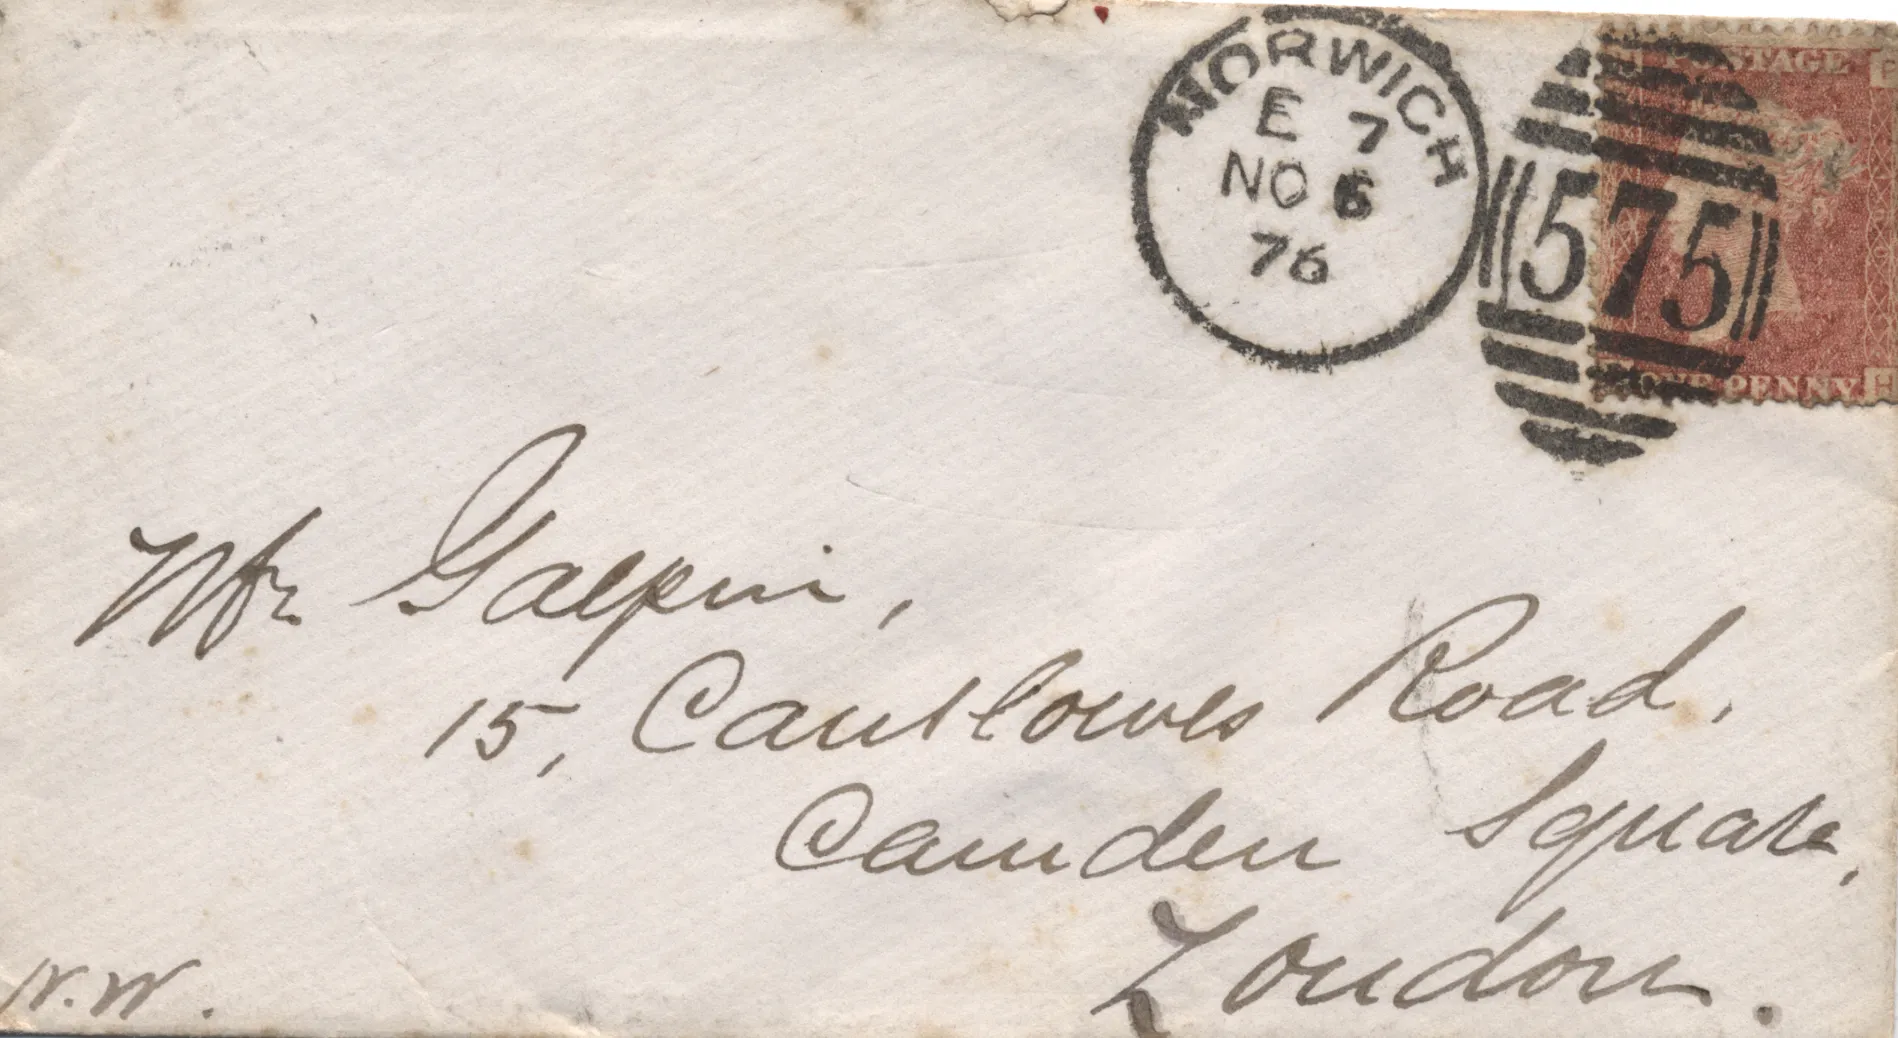 NORWICH
E 7
NO 6
76
575
POSTAGE
F
ONE PENNY
H
Mr Galpin,
15, Cantlowes Road,
Camden Square,
London.
N.W.